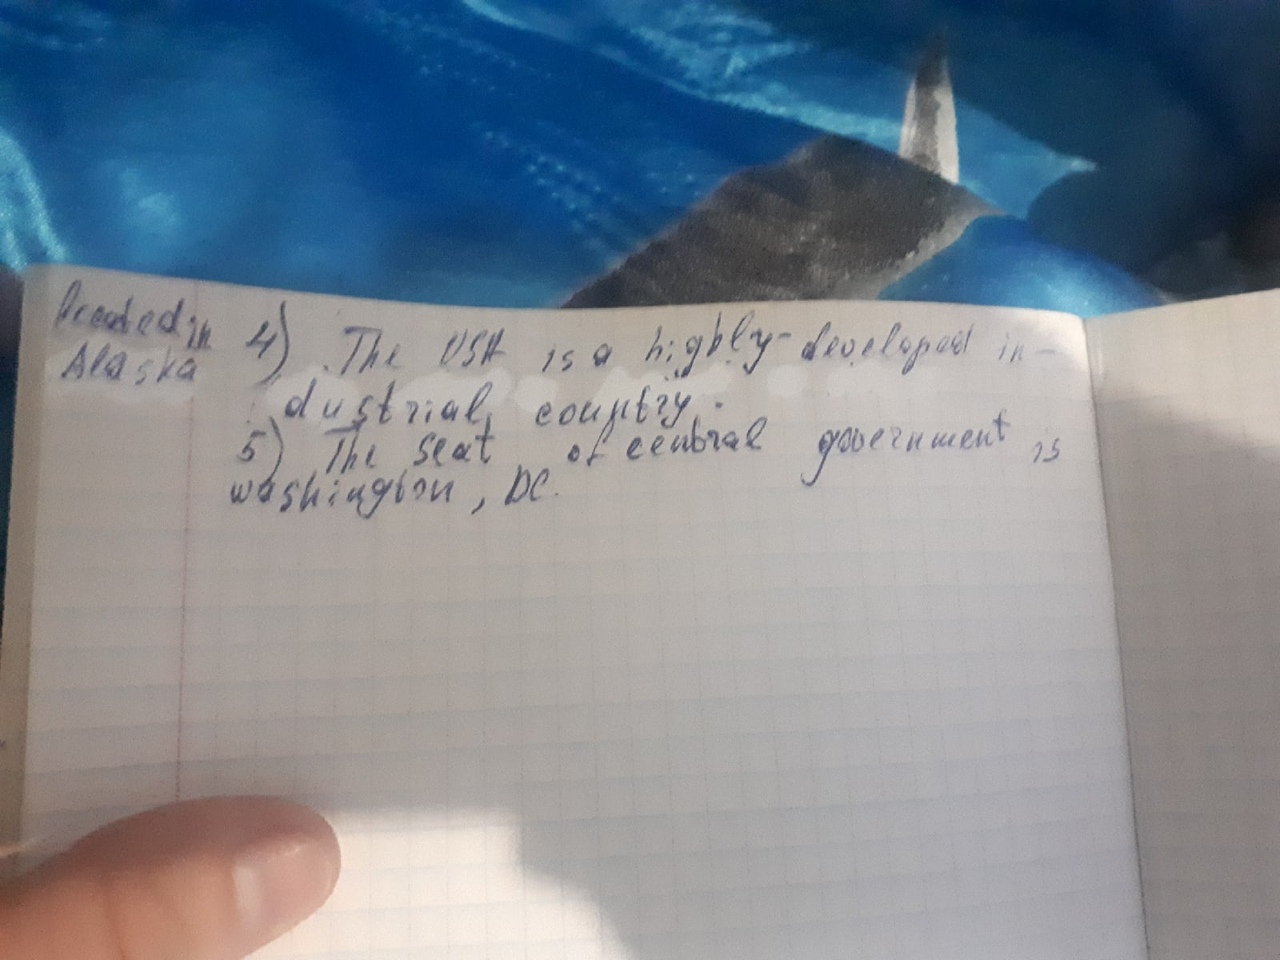 located in
Alaska
4) The USA is a highly-developed in-
dustrial country.
5) The seat of central government is
washington, DC.